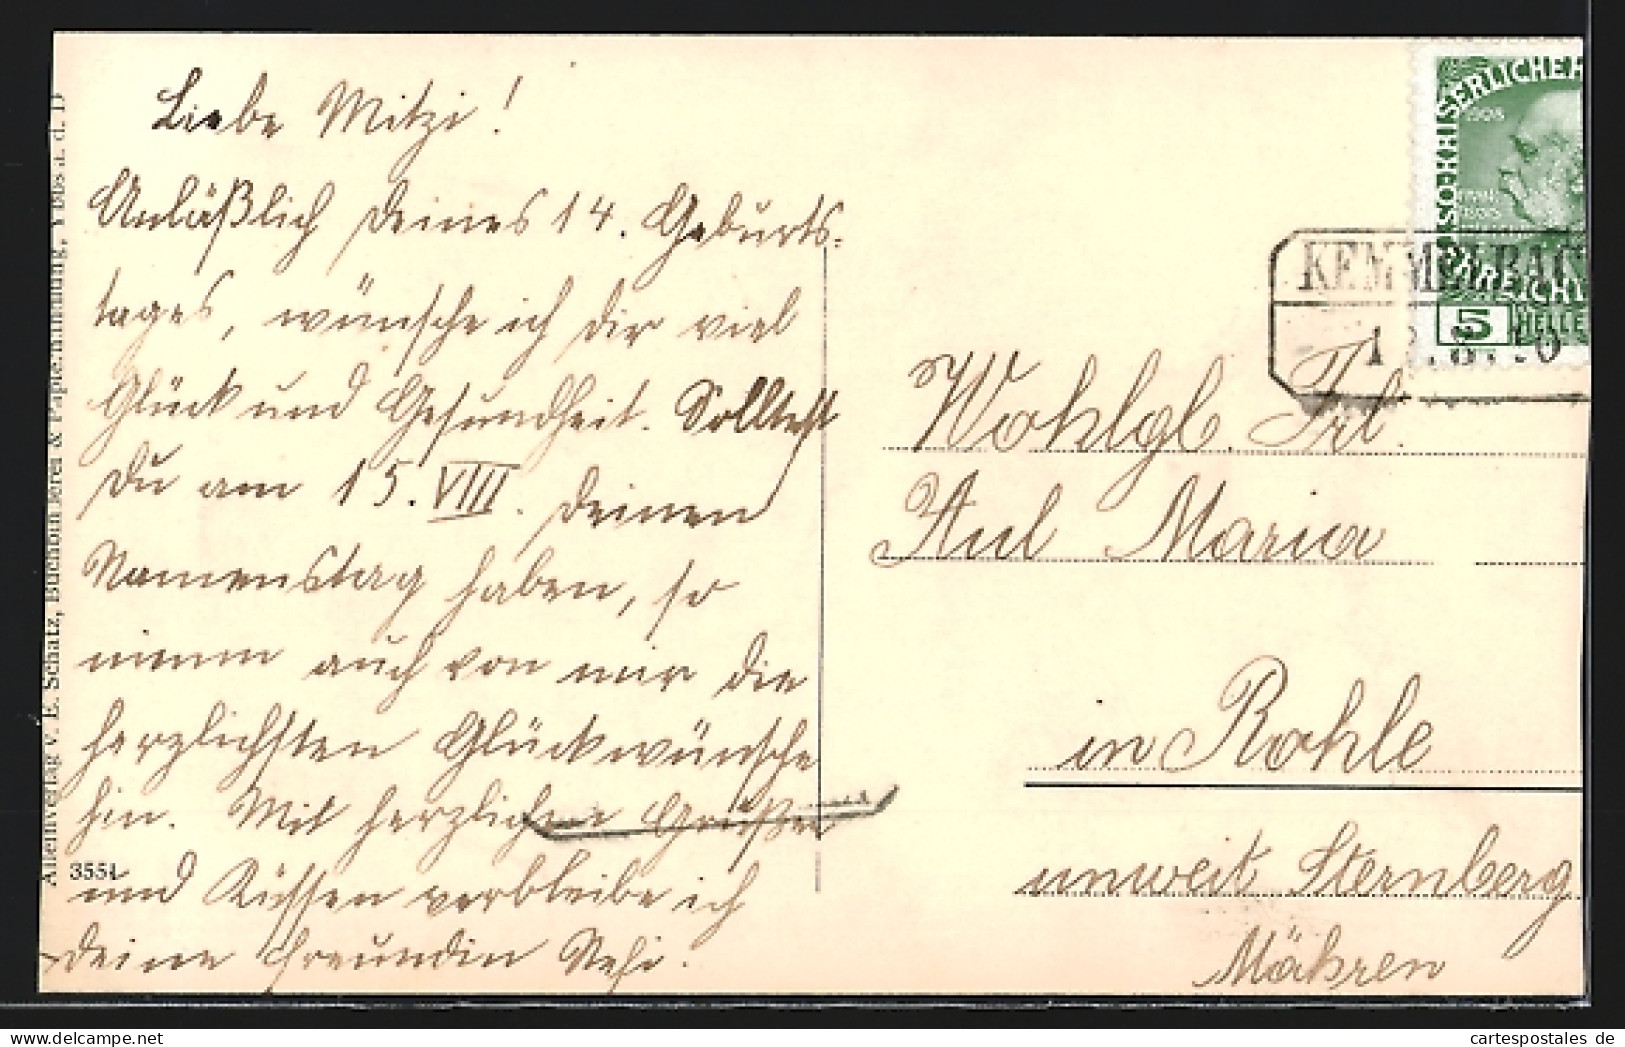 Liebe Mitzi!
Anläßlich deines 14. Geburts-
tages, wünsche ich dir viel
Glück und Gesundheit. Solltest
du am 15. VIII. deinen
Namenstag haben, so
nimm auch von mir die
herzlichsten Glückwünsche
hin. Mit herzlichen Grüßen
und Küssen verbleibe ich
deine Freundin Resi.
Alleinverlag v. E. Schatz, Buchbinderei & Papierhandlung, Ybbs a. d. D
3551
SO·KAISERLICHE
1908
5 HELLE
KEMMELBAC
Wohlgb. Frl.
Aul Maria
in Rohle
unweit Sternberg
Mähren
cartespostales de